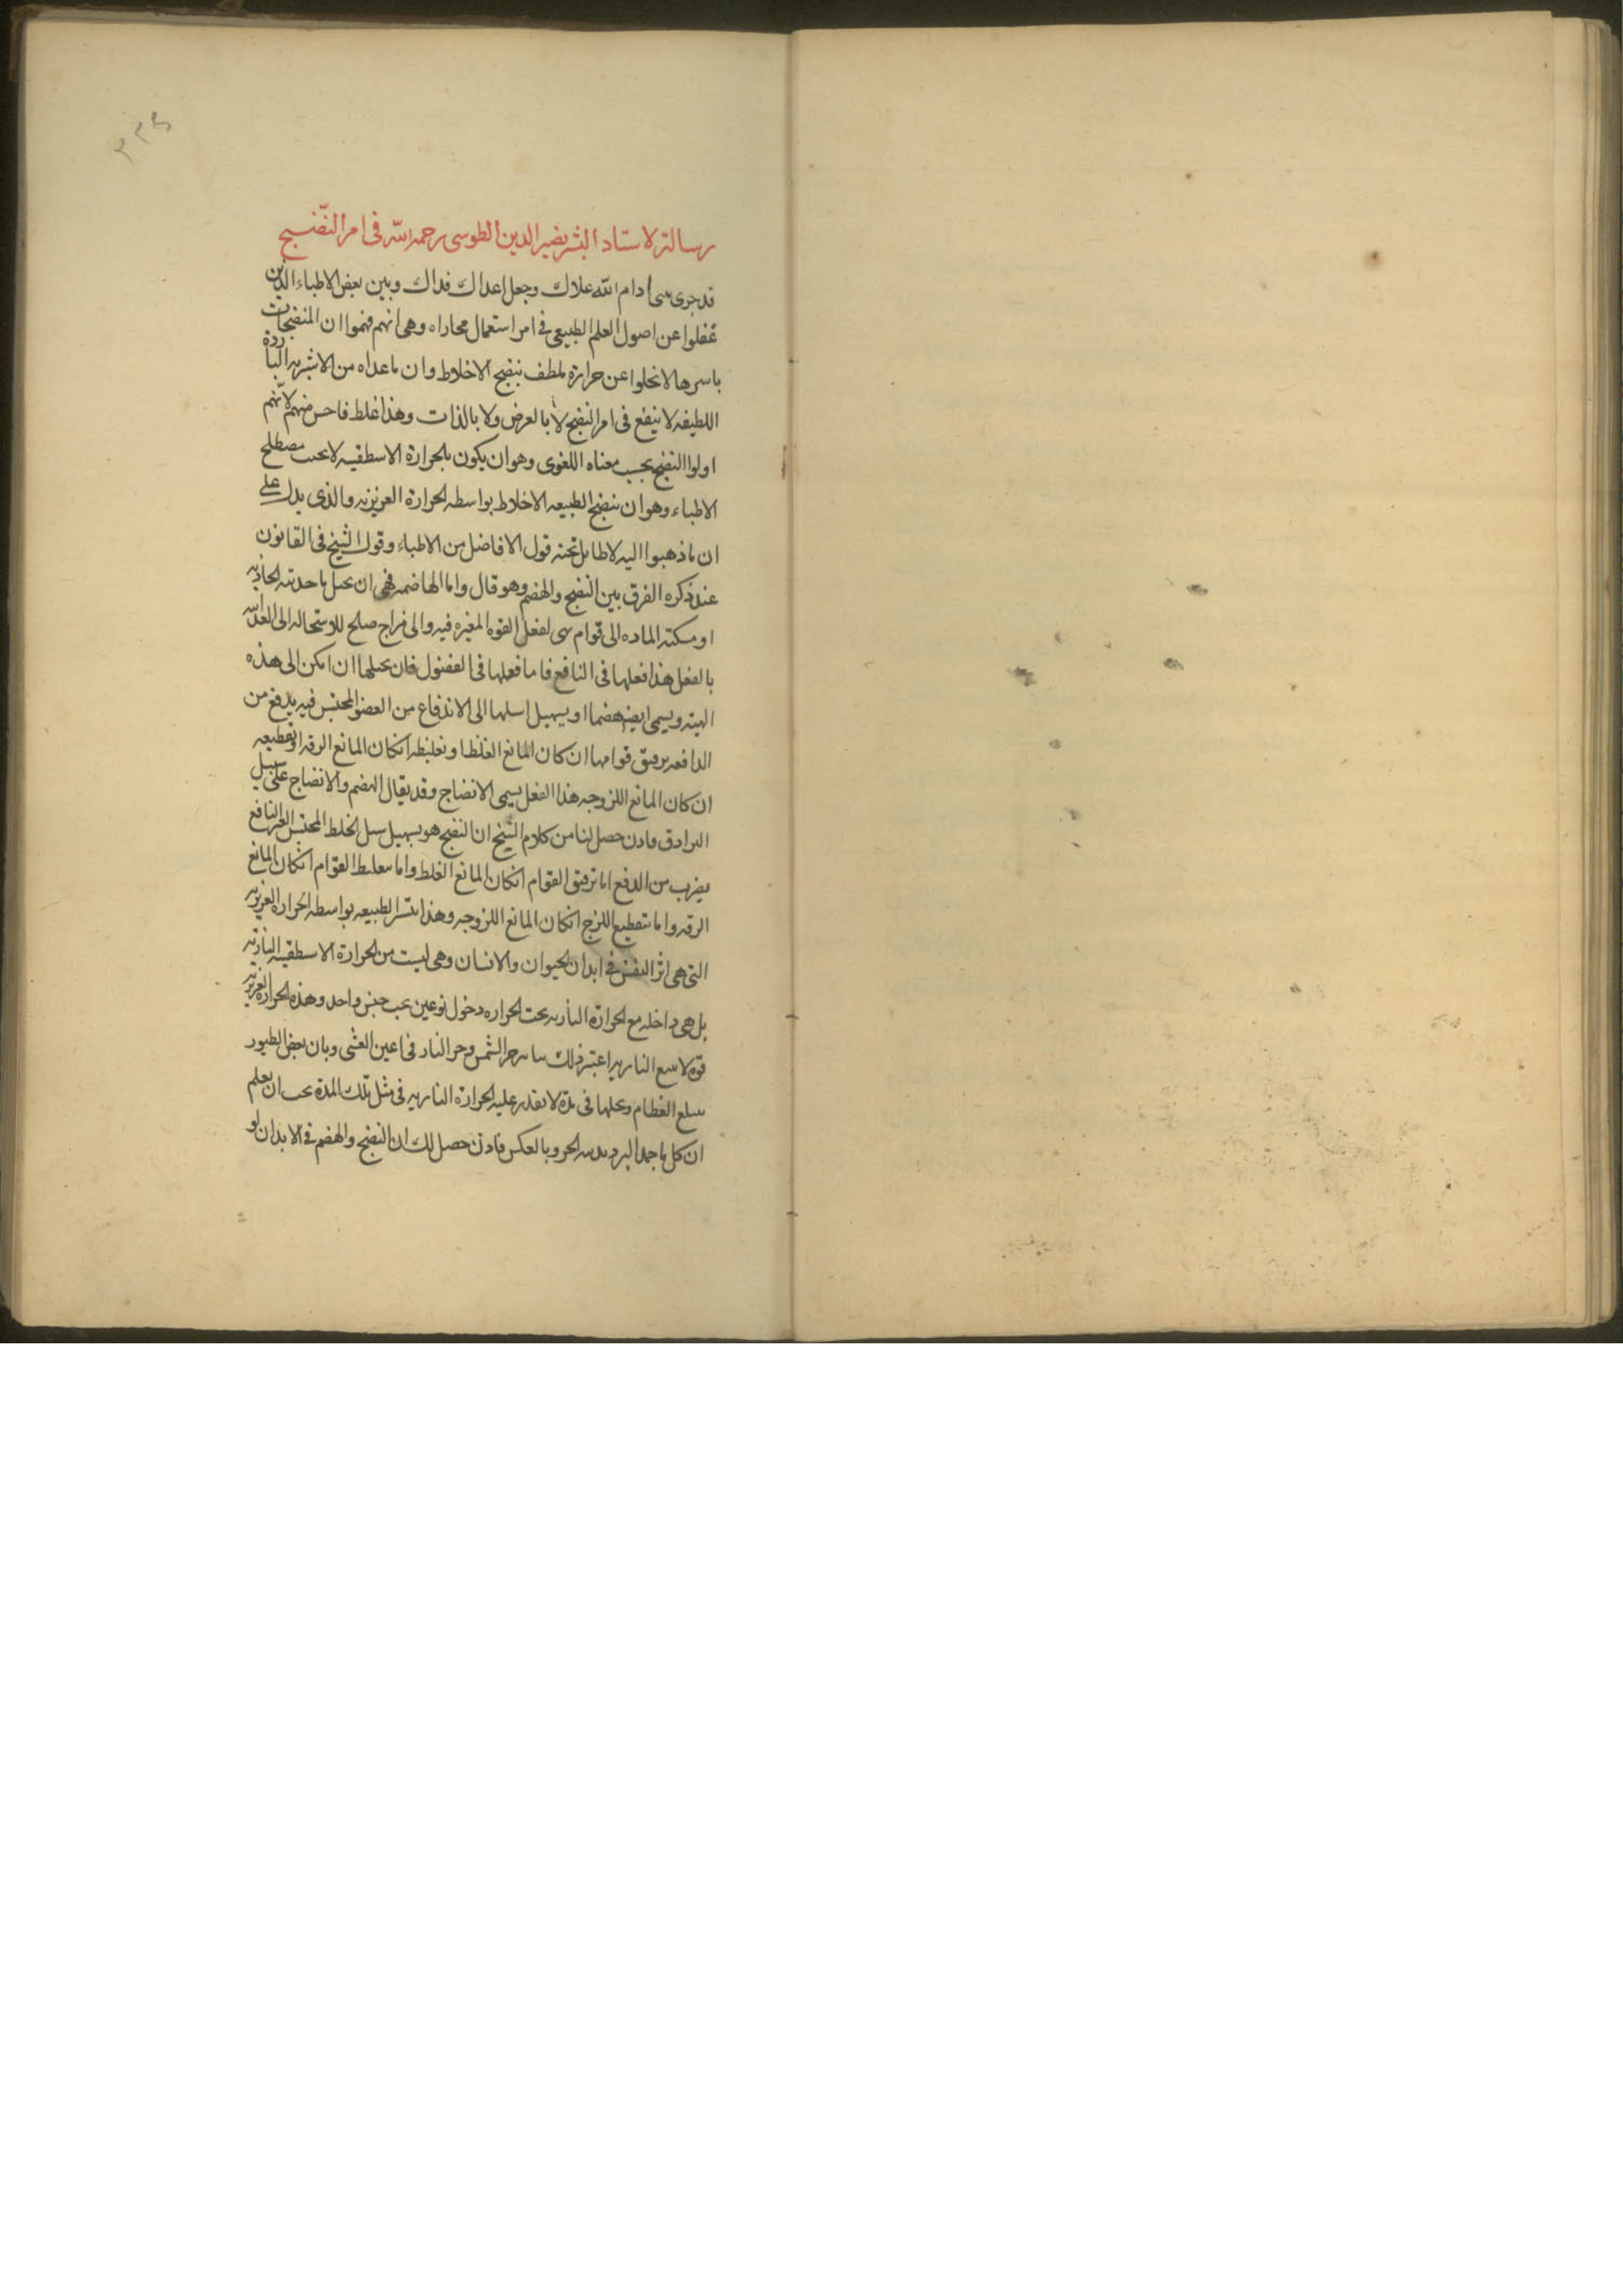 رسالة لاستاد البشر نصير الدين الطوسى رحمه الله فى امر النضج
قد جرى بينى ادام الله علاك وجعل اعداك فداك وبين بعض الاطباء الذين
غفلوا عن اصول العلم الطبيعى فى امر استعمال محاراه وهى انهم فهموا ان المنضجات
باسرها لا تخلوا عن حرارة ملطف بنضج الاخلاط وان ما عداه من الاشربه الباردة
اللطيفه لا ينفع فى امر النضج لا بالعرض ولا بالذات وهذا غلط فاحس منهم لانهم
اولوا النضج بحسب معناه اللغوى وهو ان يكون بالحرارة الاسطقسيه لا بحسب مصطلح
الاطباء وهو ان ينضج الطبيعه الاخلاط بواسطه الحرارة الغريزيه والذى يدل على
ان ما ذهبوا اليه لا طايل تحته قول الافاضل من الاطباء وقول الشيخ فى القانون
عند ذكره الفرق بين النضج والهضم وهو قال واما الهاضمه فهى ان تحيل ما جذبته الجاذبه
او مسكته الماده الى قوام لفعل القوه المغيره فيه والى مزاج صلح للاستحاله الى الغذائيه
بالفعل هذا فعلها فى النافع فاما فعلها فى الفضول فان تحيلها ان امكن الى هذه
الهيئه ويسمى ايضا هضما او يسهل سبيلها الى الاندفاع من العضو المحتبس فيه يدفع من
الدافعه برقيق قوامها ان كان المانع الغلظ او تغليظه انكان المانع الرقه او تقطيعه
ان كان المانع اللزوجه هذا الفعل يسمى الانضاج وقد يقال الهضم والانضاج على سبيل
الترادف فاذن حصل لنا من كلام الشيخ ان النضج هو تسهيل سبل الخلط المحتبس الغير النافع
بضرب من الدفع اما ترقيق القوام انكان المانع الغلظ واما تغليظ القوام انكان المانع
الرقه واما بتقطيع اللزج انكان المانع اللزوجه وهذا الطبيعه بواسطه الحراره الغريزيه
التى هى اثر النفس فى ابدان الحيوان والانسان وهى ليست من الحرارة الاسطقسيه الناريه
بل هى داخله مع الحرارة الناريه تحت الحراره دخول نوعين تحت جنس واحد وهذه الحرارة الغريزيه
قوه لا سع الناريه اعتبر ذلك حر الشمس وحر النار فى اعين العشى وبان بعض الطيور
يبلع العظام ويحلها فى مدة لا يقدر عليه الحرارة الناريه فى مثل تلك المدة يجب ان يعلم
ان كل ما جمد البرد يذيبه الحر وبالعكس فاذن حصل لك ان النضج والهضم فى الابدان لو